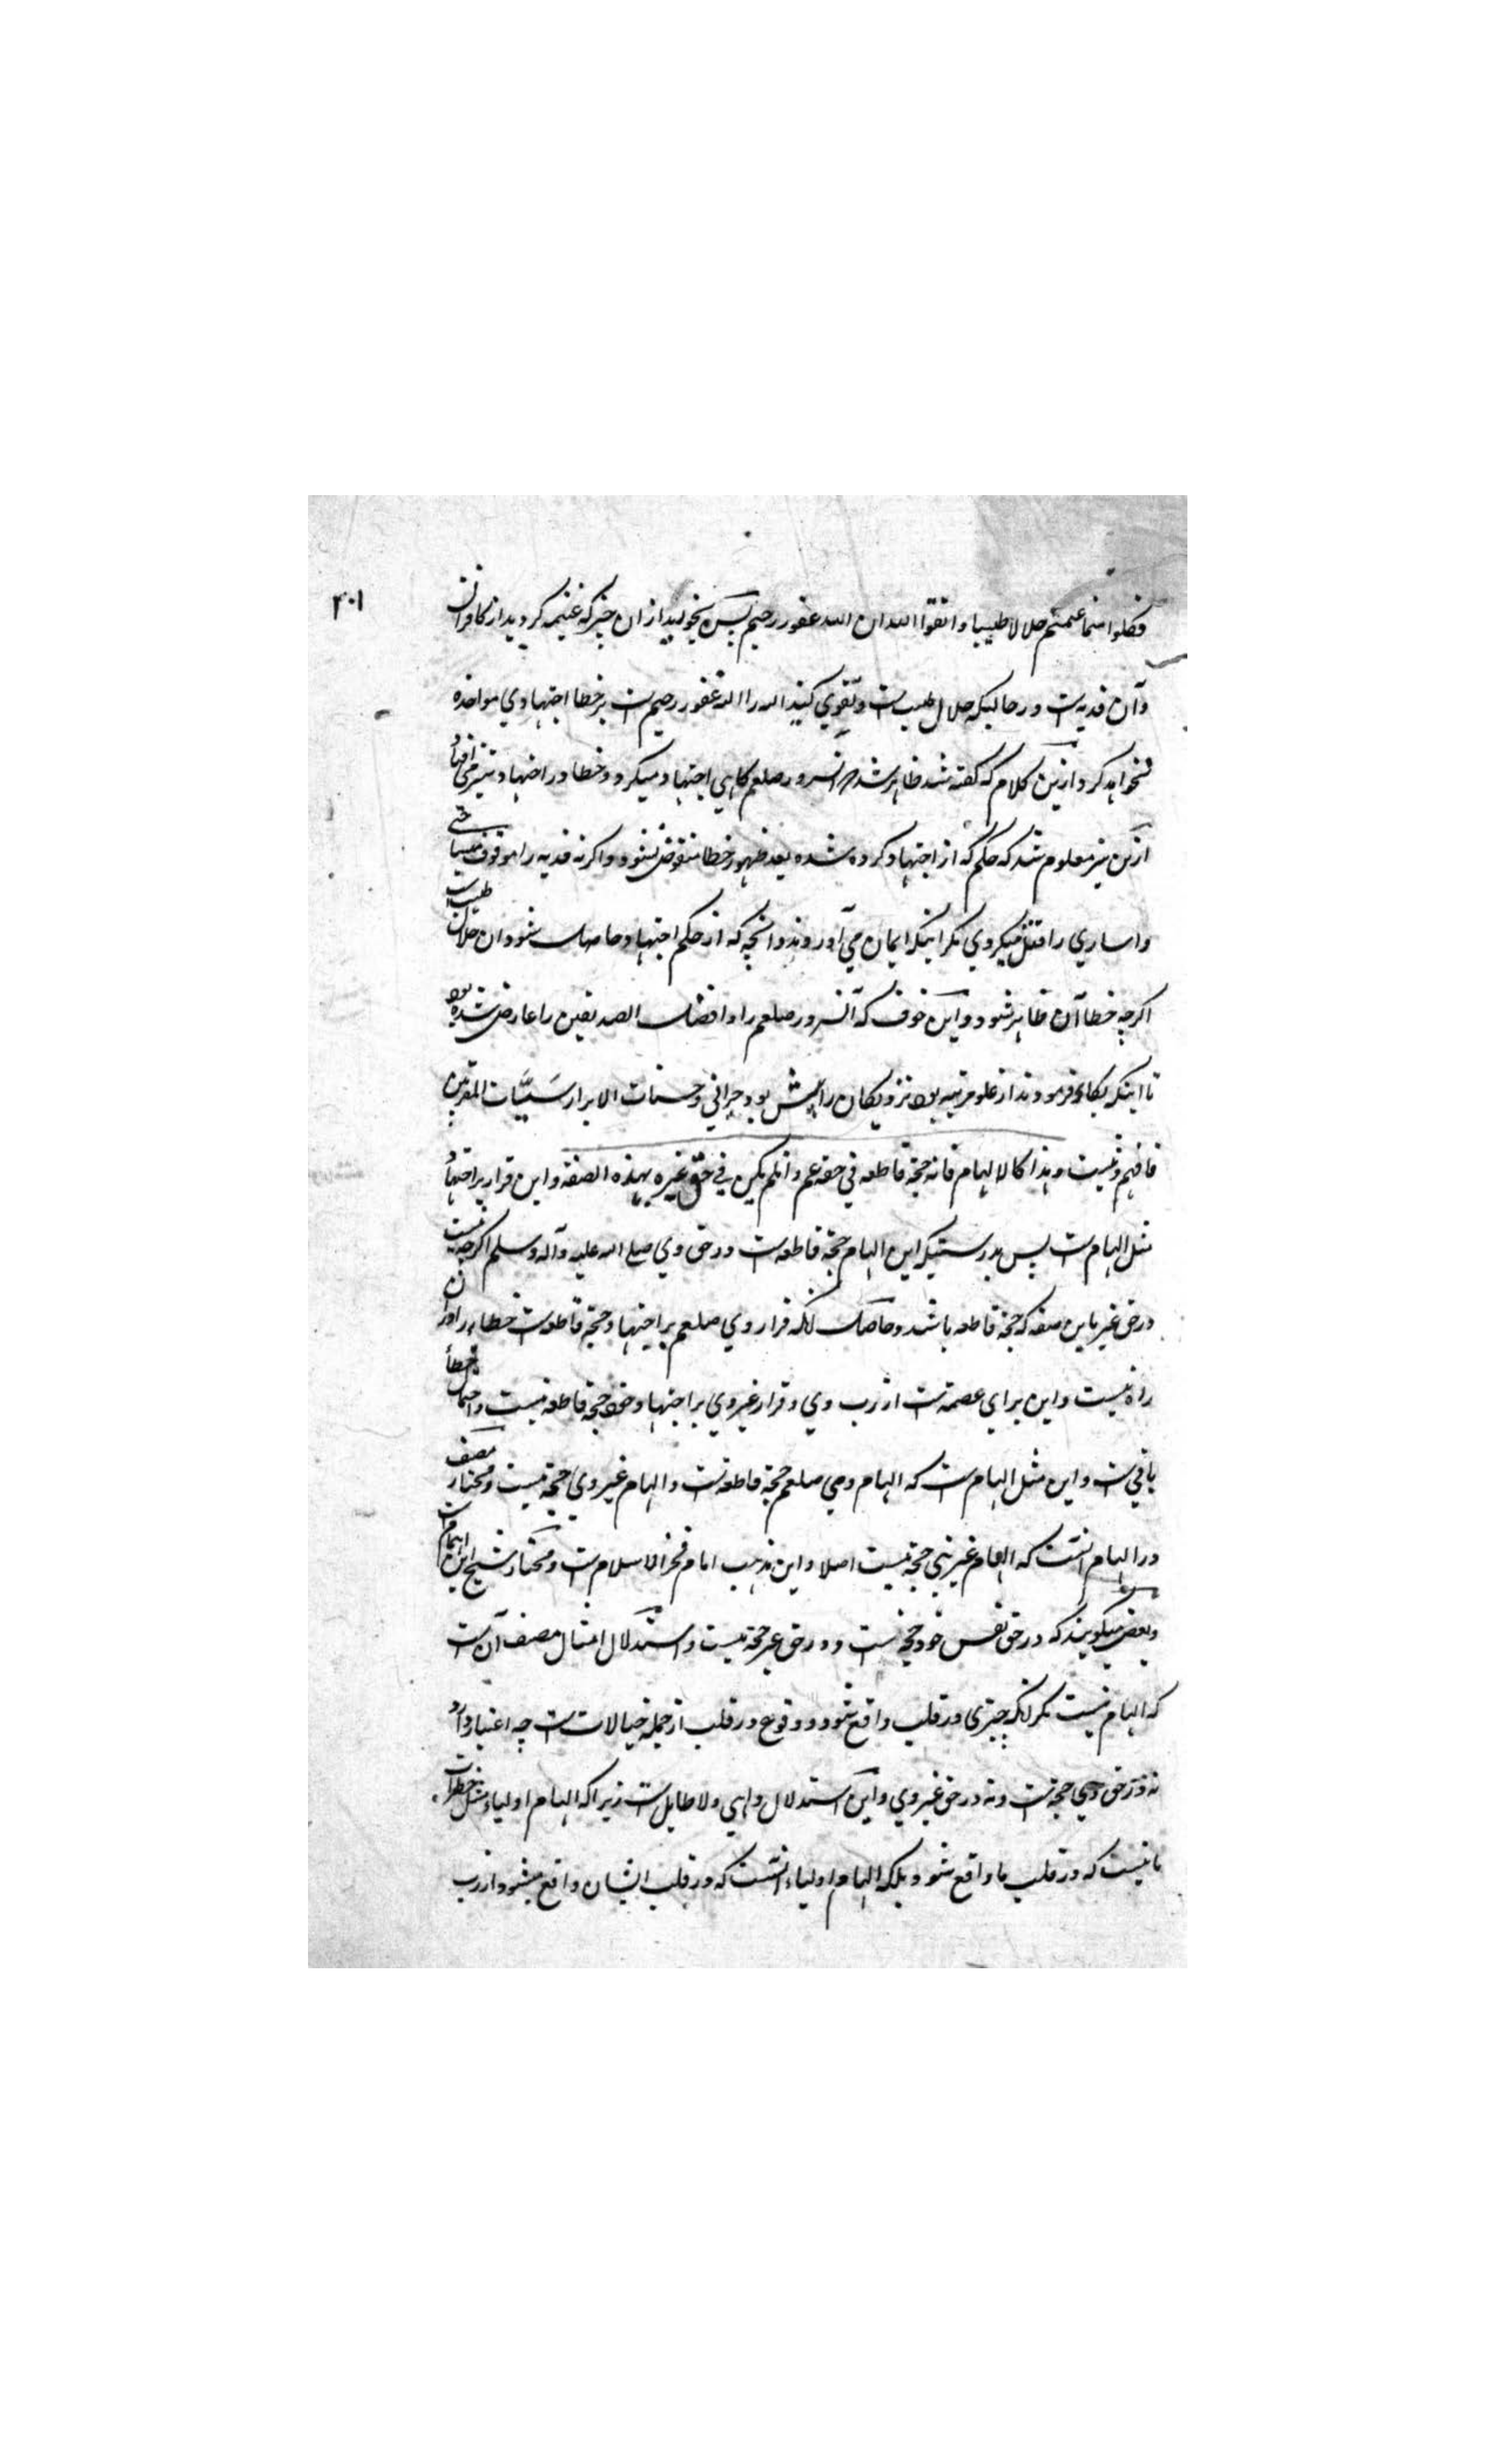 ۲۰۱
فكلوا مما غنمتم حلالا طيبا و اتقوا الله ان الله غفور رحيم پس بخوريد از ان چيز كه غنيمه كرديد از كافران
و آن فديه ست در حاليكه حلال طيب ست و تقوي كنيد الله را الله غفور رحيم ست بر خطا اجتهادي مواخذه
نخواهد كرد و ازين كلام كه گفته شد ظاهر شد كه آنسرور صلعم گاهي اجتهاد ميكرد و خطا در اجتهاد نيز مي افتاد
ازين نيز معلوم شد كه حكم كه از اجتهاد كرده شده بعد ظهور خطا منقوض نشود و اگرنه فديه را موقوف ميساختي
و اساري را قتل ميكردي مگر اينكه ايمان مي آوردند و آنچه كه از حكم اجتهاد حاصل شود ان حلال طيب ست
اگرچه خطا آن ظاهر شود و اين خوف كه آنسرور صلعم را و افضل الصديقين را عارض شده بود
تا اينكه بكا فرمودند از علو مرتبه بود نزديكان را بيش بود حيراني و حسنات الابرار سَيّئات المقربين
فافهم و تثبت و هذا كالالهام فانه حجة قاطعه في حقه عم و ان لم يكن في حق غيره بهذه الصفة و اين قرار بر اجتهاد
مثل الهام ست پس بدرستيكه اين الهام حجة قاطعه ست در حق وي صلى الله عليه و آله و سلم اگرچه نيست
در حق غير باين صفه كه حجة قاطعه باشد و حاصل انكه قرار وي صلعم بر اجتهاد حجة قاطعه ست خطا را دران
راه نيست و اين براي عصمة ست از رب وي و قرار غير وي بر اجتهاد خود حجة قاطعه نيست و احتمال خطأ
باقي ست و اين مثل الهام ست كه الهام وي صلعم حجة قاطعه ست و الهام غير وي حجة نيست و مختار مصنف
در الهام آنست كه الهام غير نبي حجة نيست اصلا و اين مذهب امام فخر الاسلام ست و مختار شيخ ابن الهمام ست
و بعض ميگويند كه در حق نفس خود حجة ست و در حق غير حجة نيست و استدلال امثال مصنف آن ست
كه الهام نيست مگر انكه چيزى در قلب واقع شود و وقوع در قلب از جمله خيالات ست چه اعتبار دارد
نه در حق وي حجة ست و نه در حق غير وي و اين استدلال واهي و لا طايل ست زيرا كه الهام اولياء مثل خطرات
ما نيست كه در قلب ما واقع شود بلكه الهام اولياء آنست كه در قلب ايشان واقع ميشود از رب